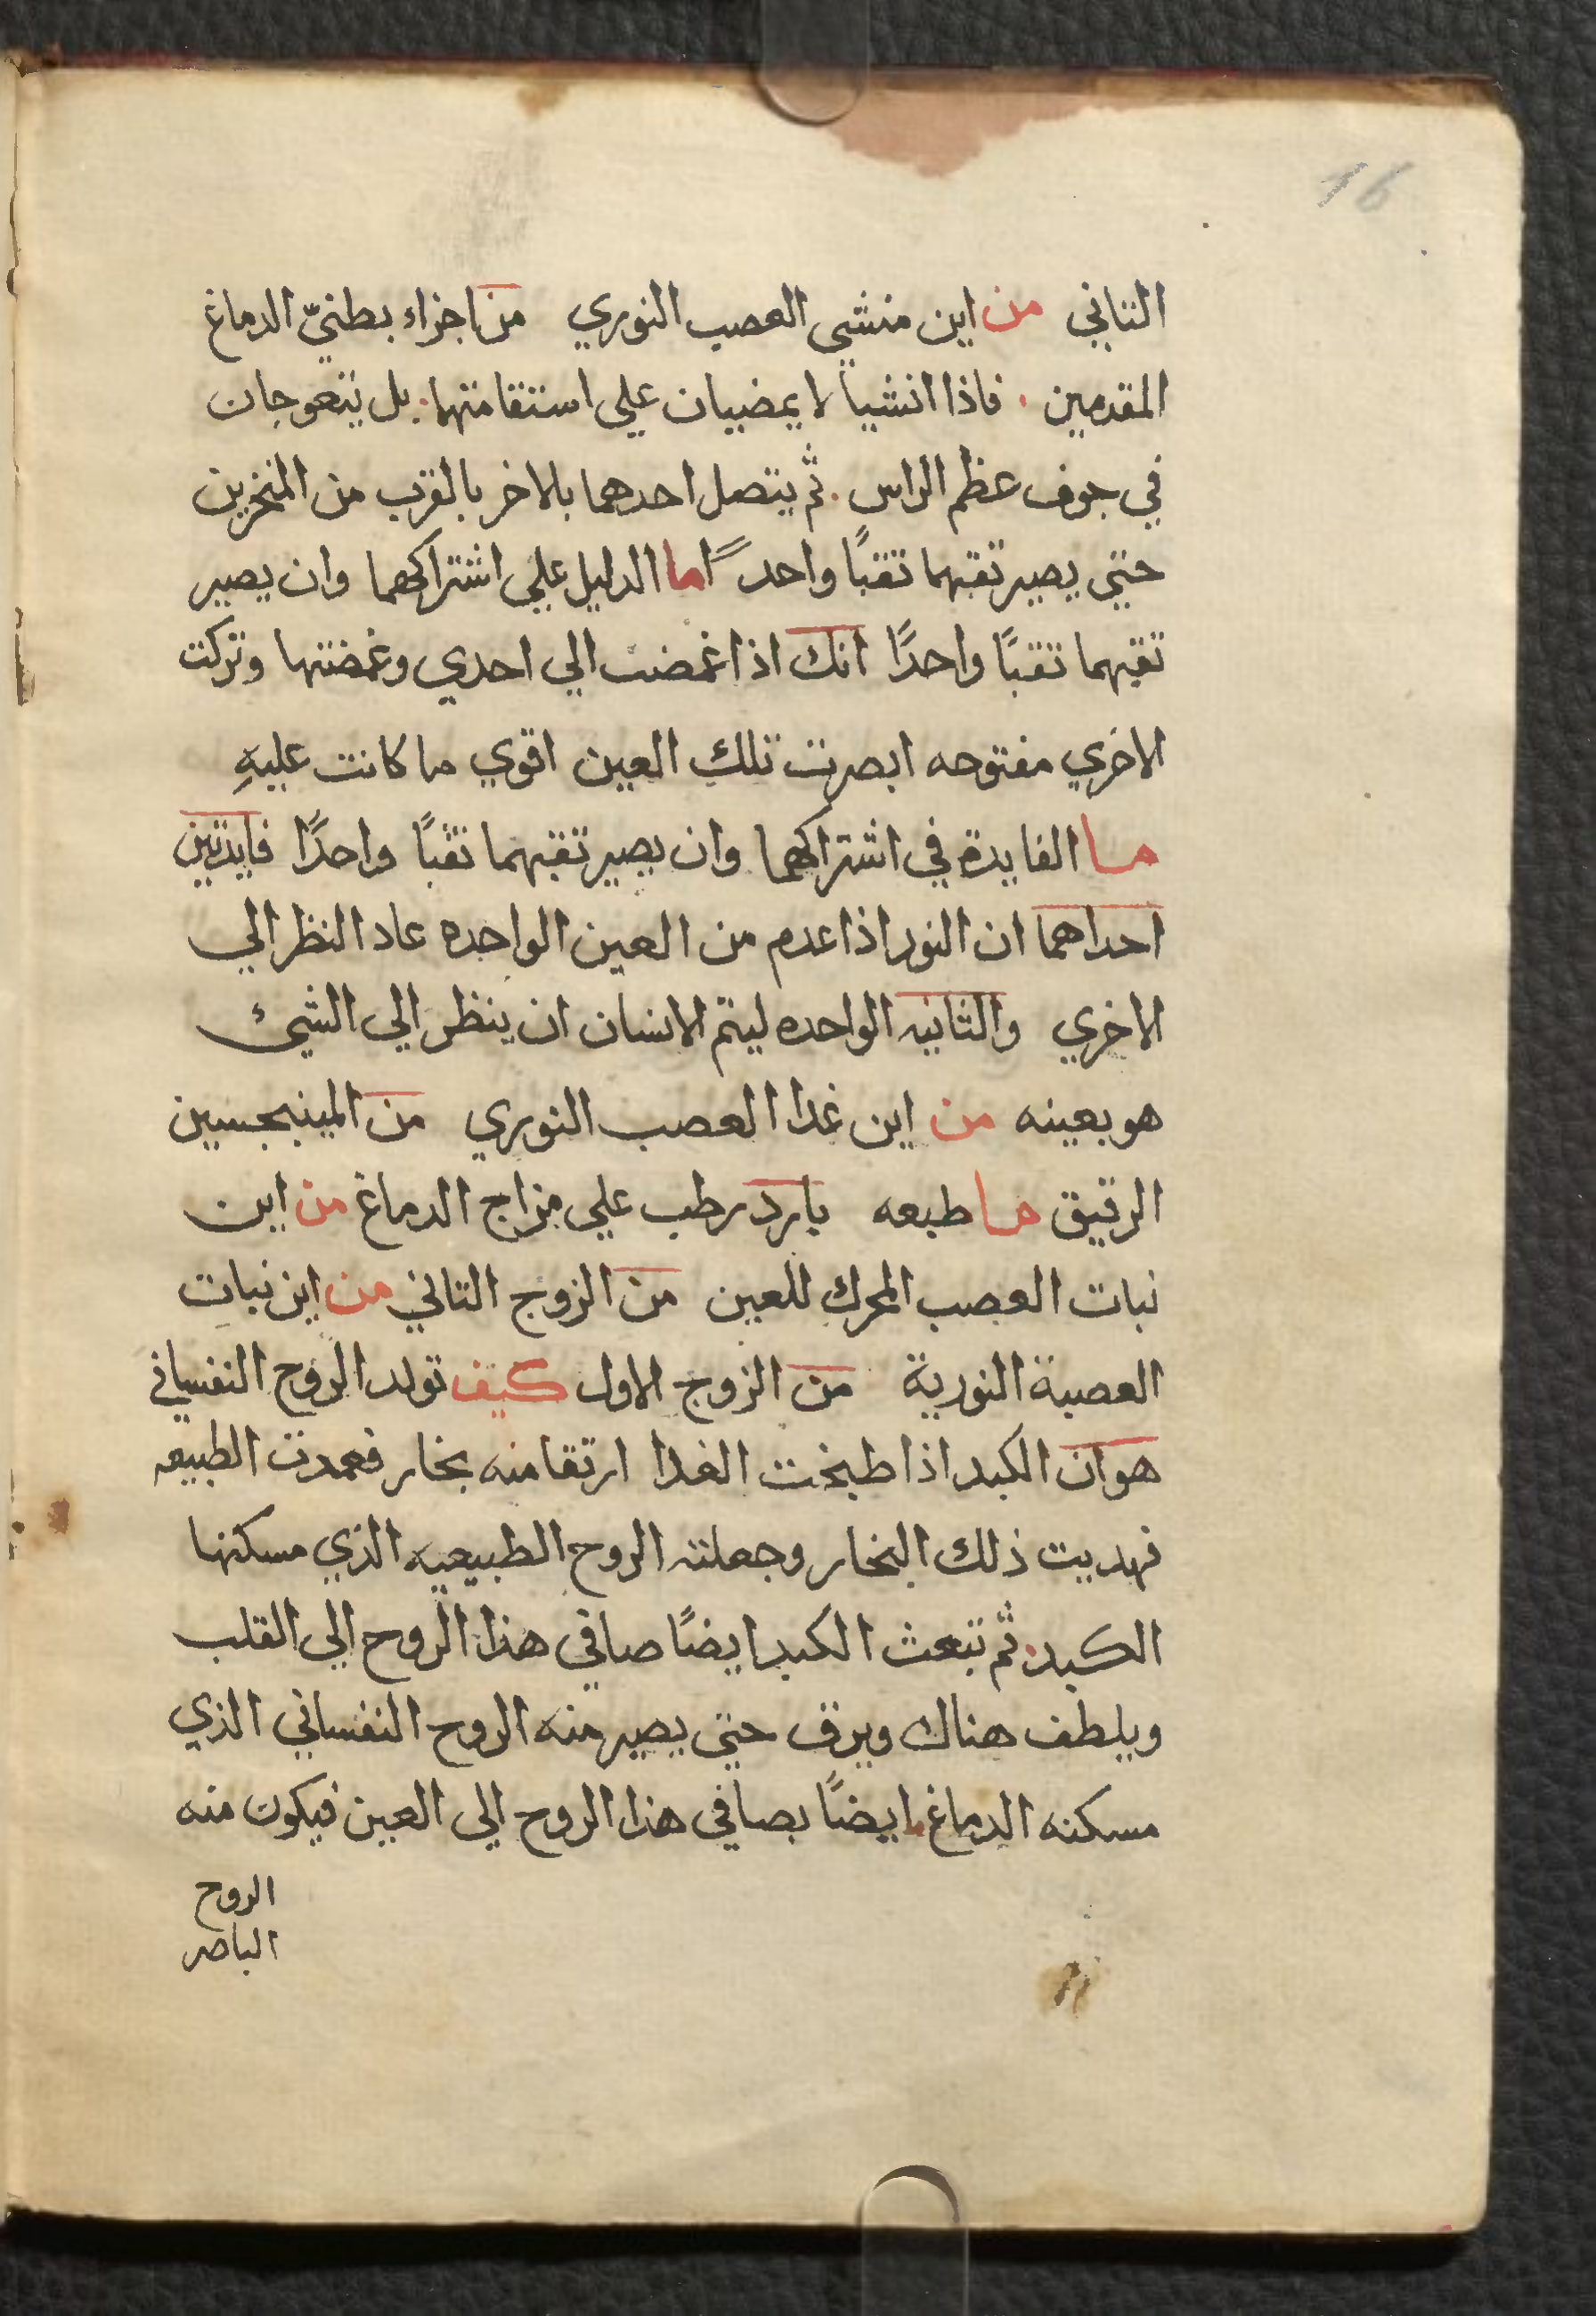 16
التاني من اين منشي العصب النوري من اجزاء بطنيّ الدماغ
المقدمين . فاذا انشيا لا يمضيان علي استقامتهما . بل يتعوجان
في جوف عظم الراس . ثم يتصل احدهما بالاخر بالقرب من المنخرين
حتي يصير تقبهما تقبًا واحدًا اما الدليل علي اشتراكهما وان يصير
تقبهما تقبًا واحدًا انك اذا غمضت الي احدي وغمضتها وتركت
الاخري مفتوحه ابصرت تلك العين اقوي ما كانت عليهِ
ما الفايدة في اشتراكهما وان يصير تقبهما تقبًا واحدًا فايدتين
احداهما ان النور اذا عدم من العين الواحده عاد النظر الي
الاخري والثانيه الواحده ليتم الانسان ان ينظر الي الشيئ
هو بعينه من اين غدا العصب النوري من المينجسين
الرقيق ما طبعه بارد رطب علي مزاج الدماغ من اين
نبات العصب المحرك للعين من الزوج التاني من اين نبات
العصبة النورية من الزوج الاول كيف تولد الروح النفساني
هو ان الكبد اذا طبخت الغدا ارتقا منه بخار فعمدت الطبيعه
فهديت ذلك البخار وجعلته الروح الطبيعيه الذي مسكنها
الكبد . ثم تبعث الكبد ايضًا صافي هذا الروح الي القلب
ويلطف هناك ويرق حتي يصير منه الروح النفساني الذي
مسكنه الدماغ . ايضًا بصافي هذا الروح الي العين فيكون منه
الروح
الباصر